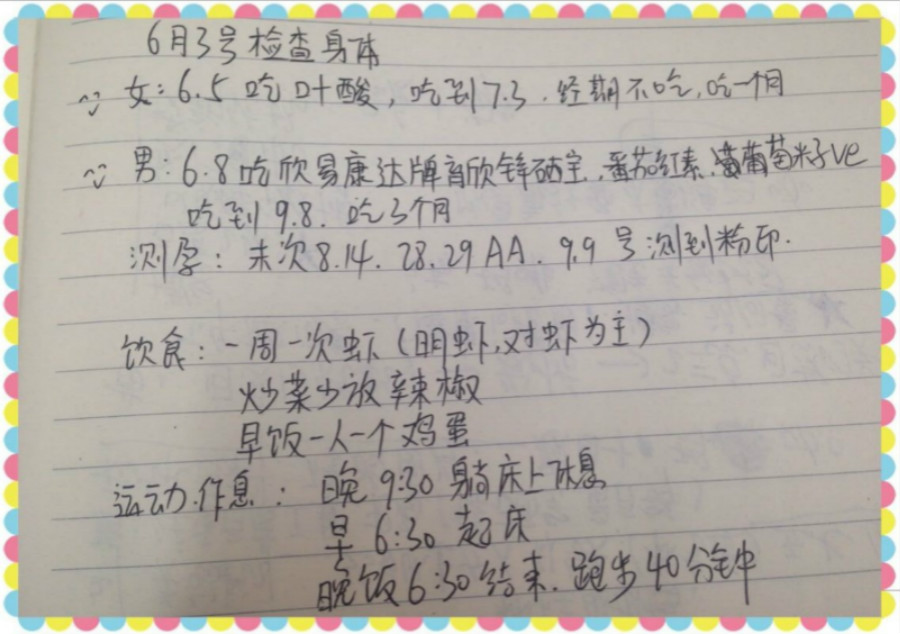 6月3号检查身体
女:6.5吃叶酸,吃到7.3.经期不吃,吃一个月
男:6.8吃欣易康达牌育欣锌硒宝.番茄红素.葡萄籽Ve
吃到9.8.吃3个月
测孕:末次8.14.28.29AA.9.9号测到粉印.
饮食:一周一次虾(明虾,对虾为主)
炒菜少放辣椒
早饭一人一个鸡蛋
运动.作息:晚9:30躺床上休息
早6:30起床
晚饭6:30结束.跑步40分钟